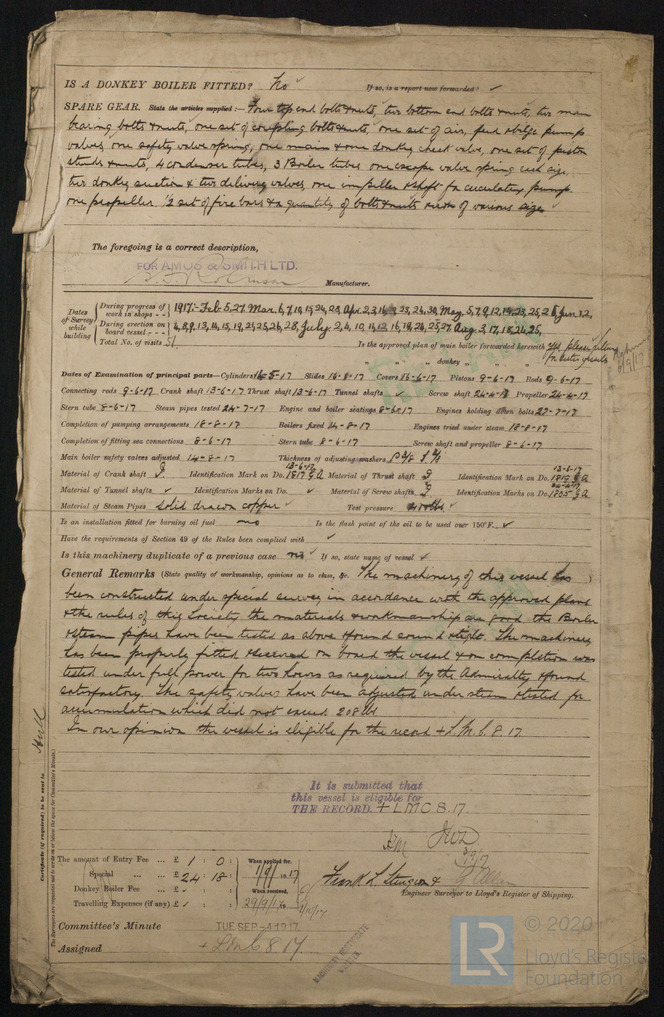 IS A DONKEY BOILER FITTED? No If so, is a report now forwarded? ✓
SPARE GEAR. State the articles supplied:— Four top end bolts & nuts, two bottom end bolts & nuts, two main
bearing bolts & nuts, one set of coupling bolts & nuts, one set of air, feed & bilge pump
valves, one safety valve spring, one main & one donkey check valve, one set of piston
studs & nuts, 4 condenser tubes, 3 Boiler tubes one escape valve spring each size,
two donkey suction & two delivery valves, one impeller & shaft for circulating pump
one propeller. ½ set of fire bars & a quantity of bolts & nuts of various sizes
The foregoing is a correct description,
FOR AMOS & SMITH LTD.
Manufacturer.
Dates of Survey while building
During progress of work in shops - - 1917:- Feb 5, 27, Mar 6, 7, 10, 15, 24, 28, Apr 2, 3, 23, 24, 30, May 5, 7, 9, 12, 19, 23, 25, Jun 1, 2,
During erection on board vessel - - - 4, 8, 9, 13, 14, 15, 19, 21, 25, 26, 28, July 2, 6, 10, 12, 16, 19, 24, 25, 27, Aug 3, 17, 18, 24, 25,
Total No. of visits 51. Is the approved plan of main boiler forwarded herewith
" " " donkey " " "
Dates of Examination of principal parts—Cylinders 15-5-17 Slides 16-8-17 Covers 15-6-17 Pistons 9-6-17 Rods 9-6-17
Connecting rods 9-6-17 Crank shaft 13-6-17 Thrust shaft 13-6-17 Tunnel shafts ✓ Screw shaft 24-4-17 Propeller 24-4-17
Stern tube 8-6-17 Steam pipes tested 24-7-17 Engine and boiler seatings 8-6-17 Engines holding down bolts 27-7-17
Completion of pumping arrangements 18-8-17 Boilers fixed 24-8-17 Engines tried under steam 18-8-17
Completion of fitting sea connections 8-6-17 Stern tube 8-6-17 Screw shaft and propeller 8-6-17
Main boiler safety valves adjusted 14-8-17 Thickness of adjusting washers P 3/8 S
Material of Crank shaft S Identification Mark on Do. 13-6-17 1817 G A Material of Thrust shaft S Identification Mark on Do. 13-6-17 1819 G A
Material of Tunnel shafts ✓ Identification Marks on Do. ✓ Material of Screw shafts S Identification Marks on Do. 1835 G A
Material of Steam Pipes Solid drawn copper ✓ Test pressure 400 lbs ✓
Is an installation fitted for burning oil fuel no Is the flash point of the oil to be used over 150°F. ✓
Have the requirements of Section 49 of the Rules been complied with ✓
Is this machinery duplicate of a previous case no If so, state name of vessel ✓
General Remarks (State quality of workmanship, opinions as to class, &c. The machinery of this vessel has
been constructed under special survey in accordance with the approved plans
& the rules of this Society the materials & workmanship are good the Boiler
& steam pipes have been tested as above & found sound & tight. The machinery
has been properly fitted & secured on board the vessel & on completion was
tested under full power for two hours as required by the Admiralty & found
satisfactory. The safety valves have been adjusted under steam & tested for
accumulation which did not exceed 208 lbs
In our opinion the vessel is eligible for the record + L.M.C. 8.17.
It is submitted that
this vessel is eligible for
THE RECORD. + LMC 8.17.
Hull
Certificate (if required) to be sent to
The amount of Entry Fee ... £ 1 : 0 : When applied for,
Special ... £ 24 : 18 : 1/9/1917
Donkey Boiler Fee ... £ ✓ : : When received,
Travelling Expenses (if any) £ ✓ : : 29/9/19
Frank L Sturgeon &
Engineer Surveyor to Lloyd's Register of Shipping.
Committee's Minute TUE SEP -4 1917
Assigned + LMC 8.17
MACHINERY CERTIFICATE WRITTEN.
© 2020
LR Lloyd's Register
Foundation